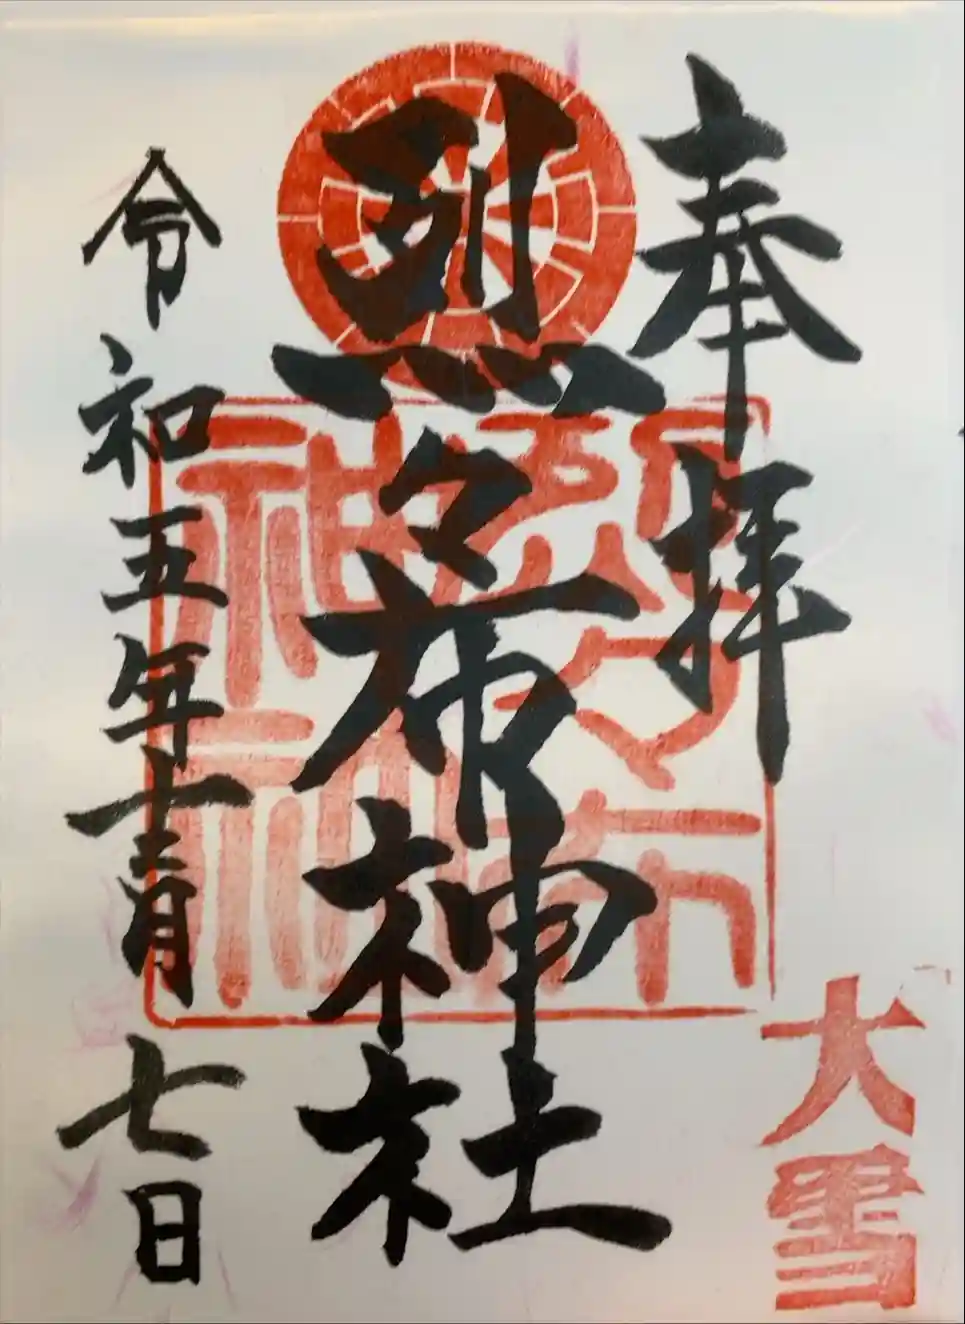 奉拝
烈々布神社
令和五年十二月七日
烈々布
神社
大雪